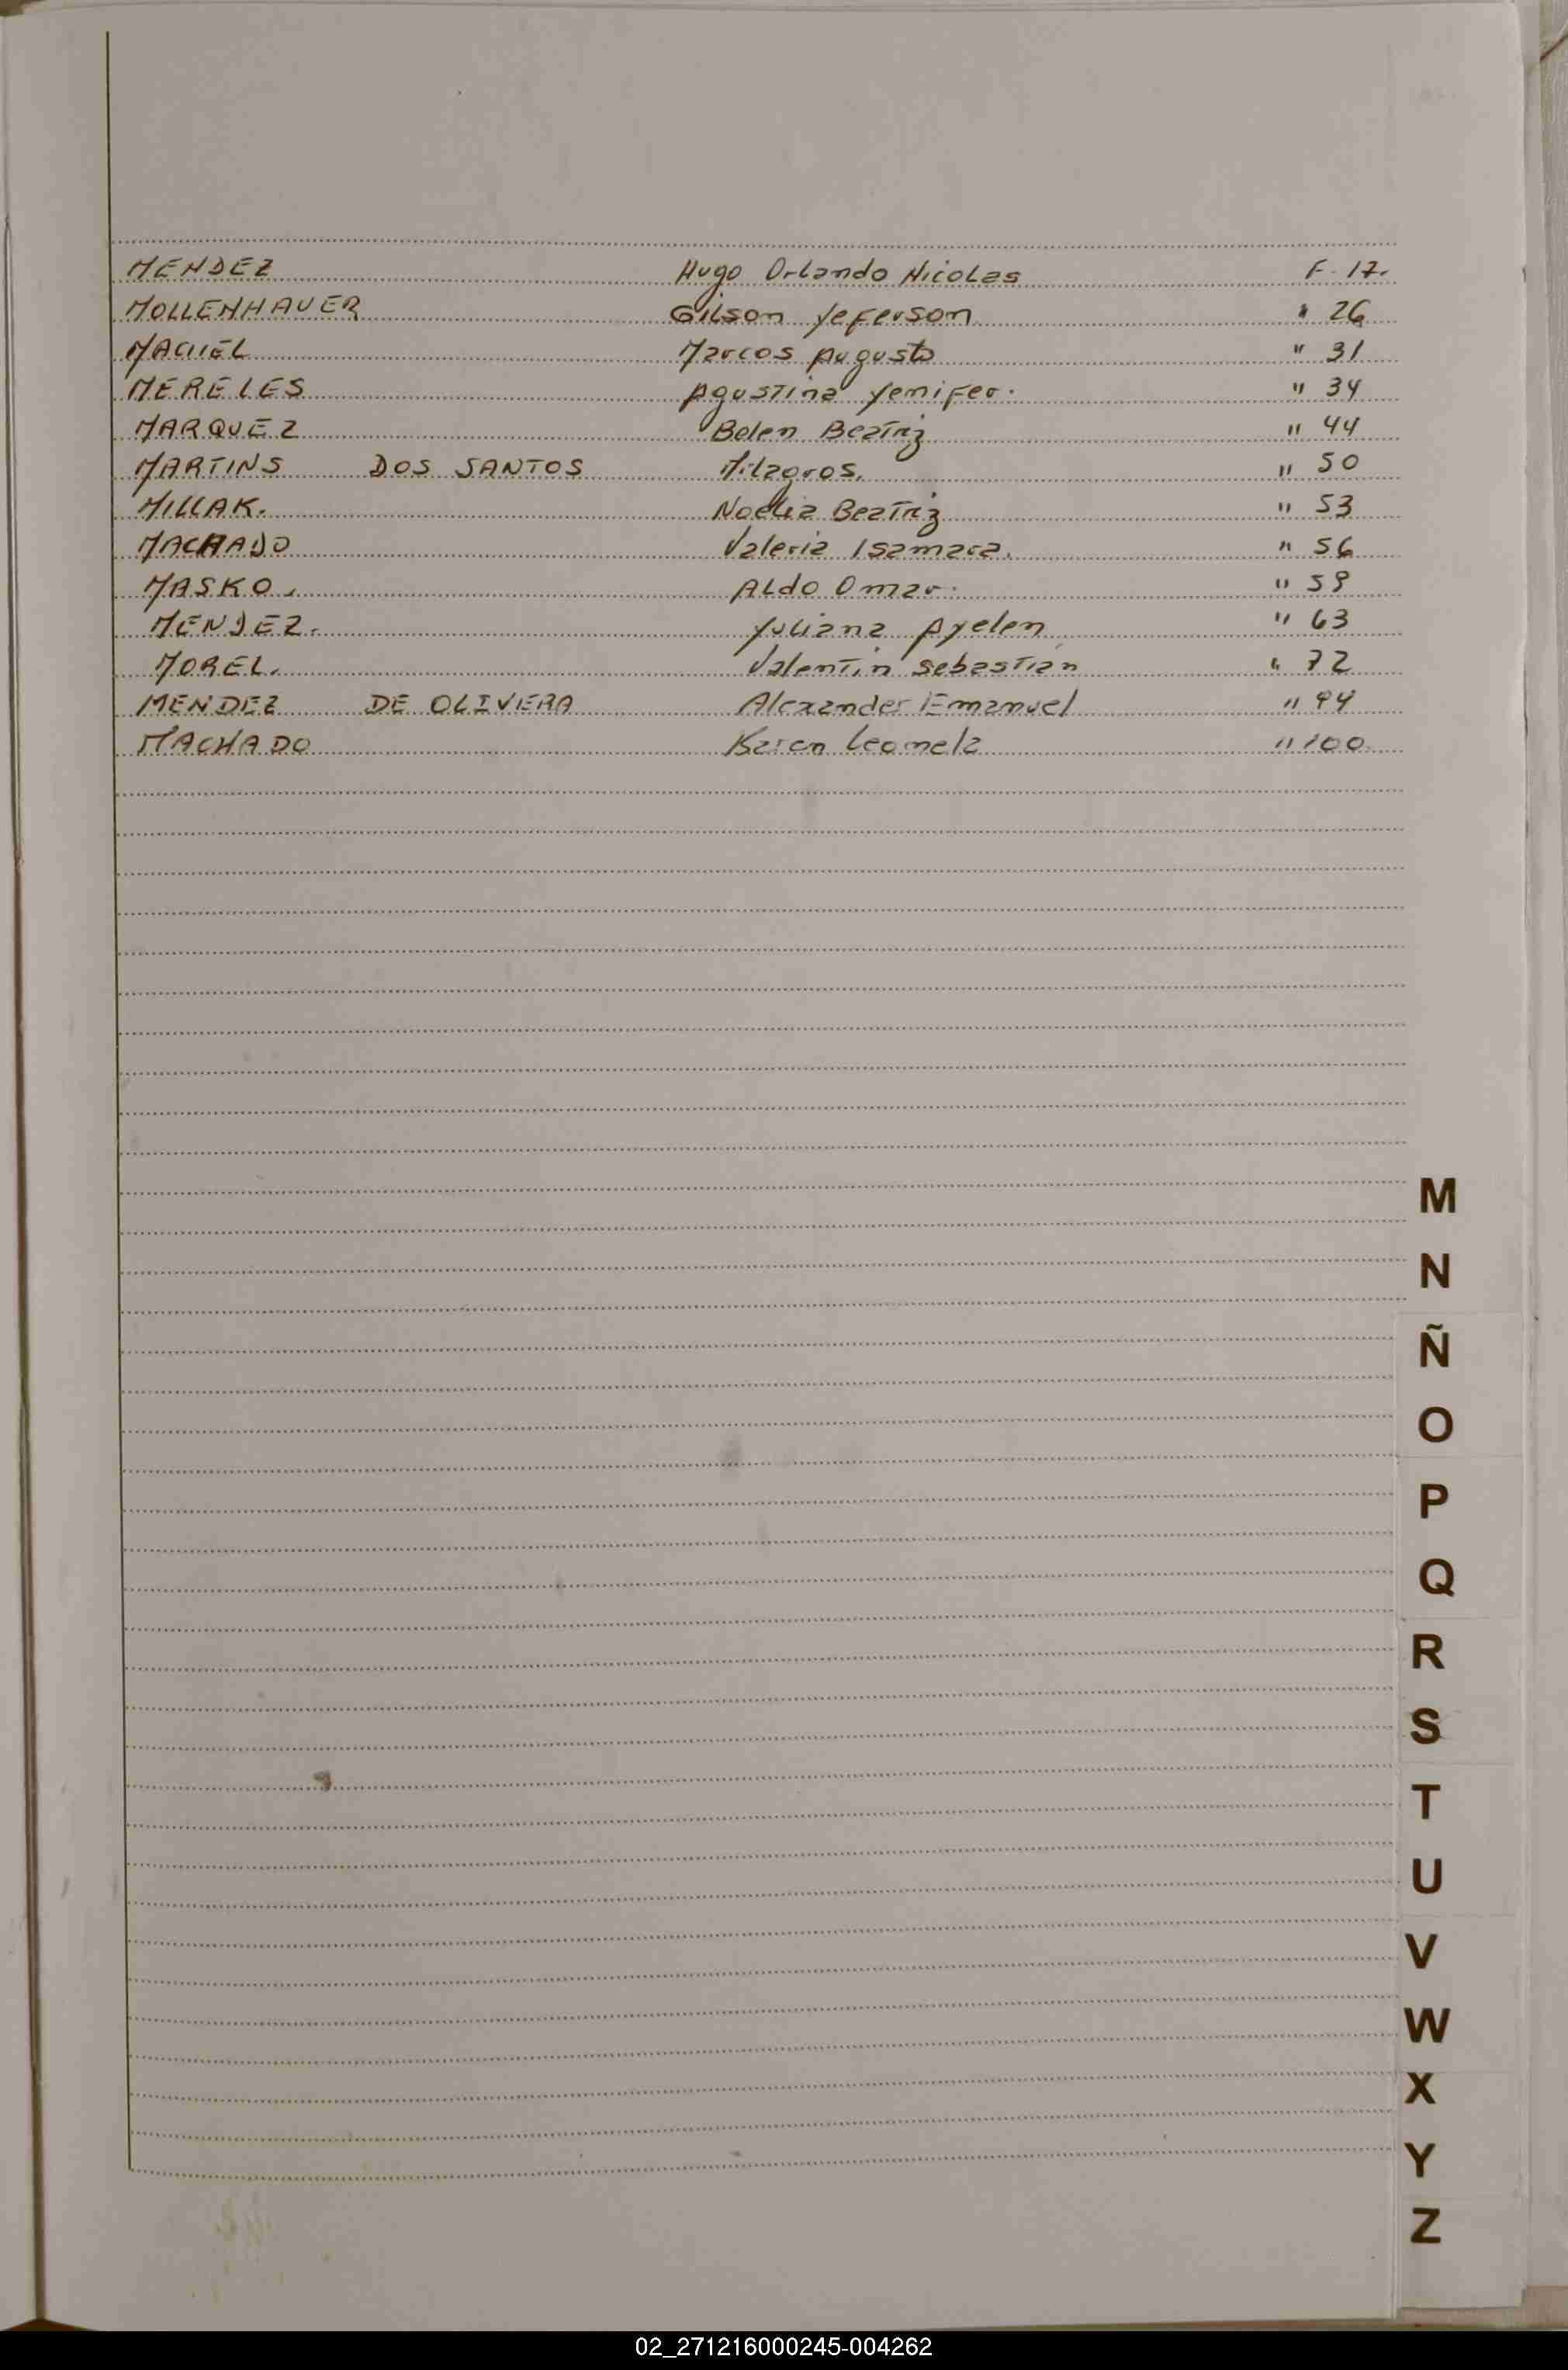 MENDEZ Hugo Orlando Nicolas F. 17.
MOLLENHAUER Gilson Yeferson " 26
MACIEL Marcos Augusto " 31
MERELES Agustina Yenifer. " 34
MARQUEZ Belen Beatriz " 44
MARTINS DOS SANTOS Milagros. " 50
MILLAK. Noelia Beatriz " 53
MACHADO Valeria Isamara. " 56
MASKO. Aldo Omar. " 59
MENDEZ. Yuliana Ayelen " 63
MOREL. Valentin Sebastián " 72
MENDEZ DE OLIVERA Alexander Emanuel " 94
MACHADO Karen Leonela " 100
M
N
Ñ
O
P
Q
R
S
T
U
V
W
X
Y
Z
02_271216000245-004262